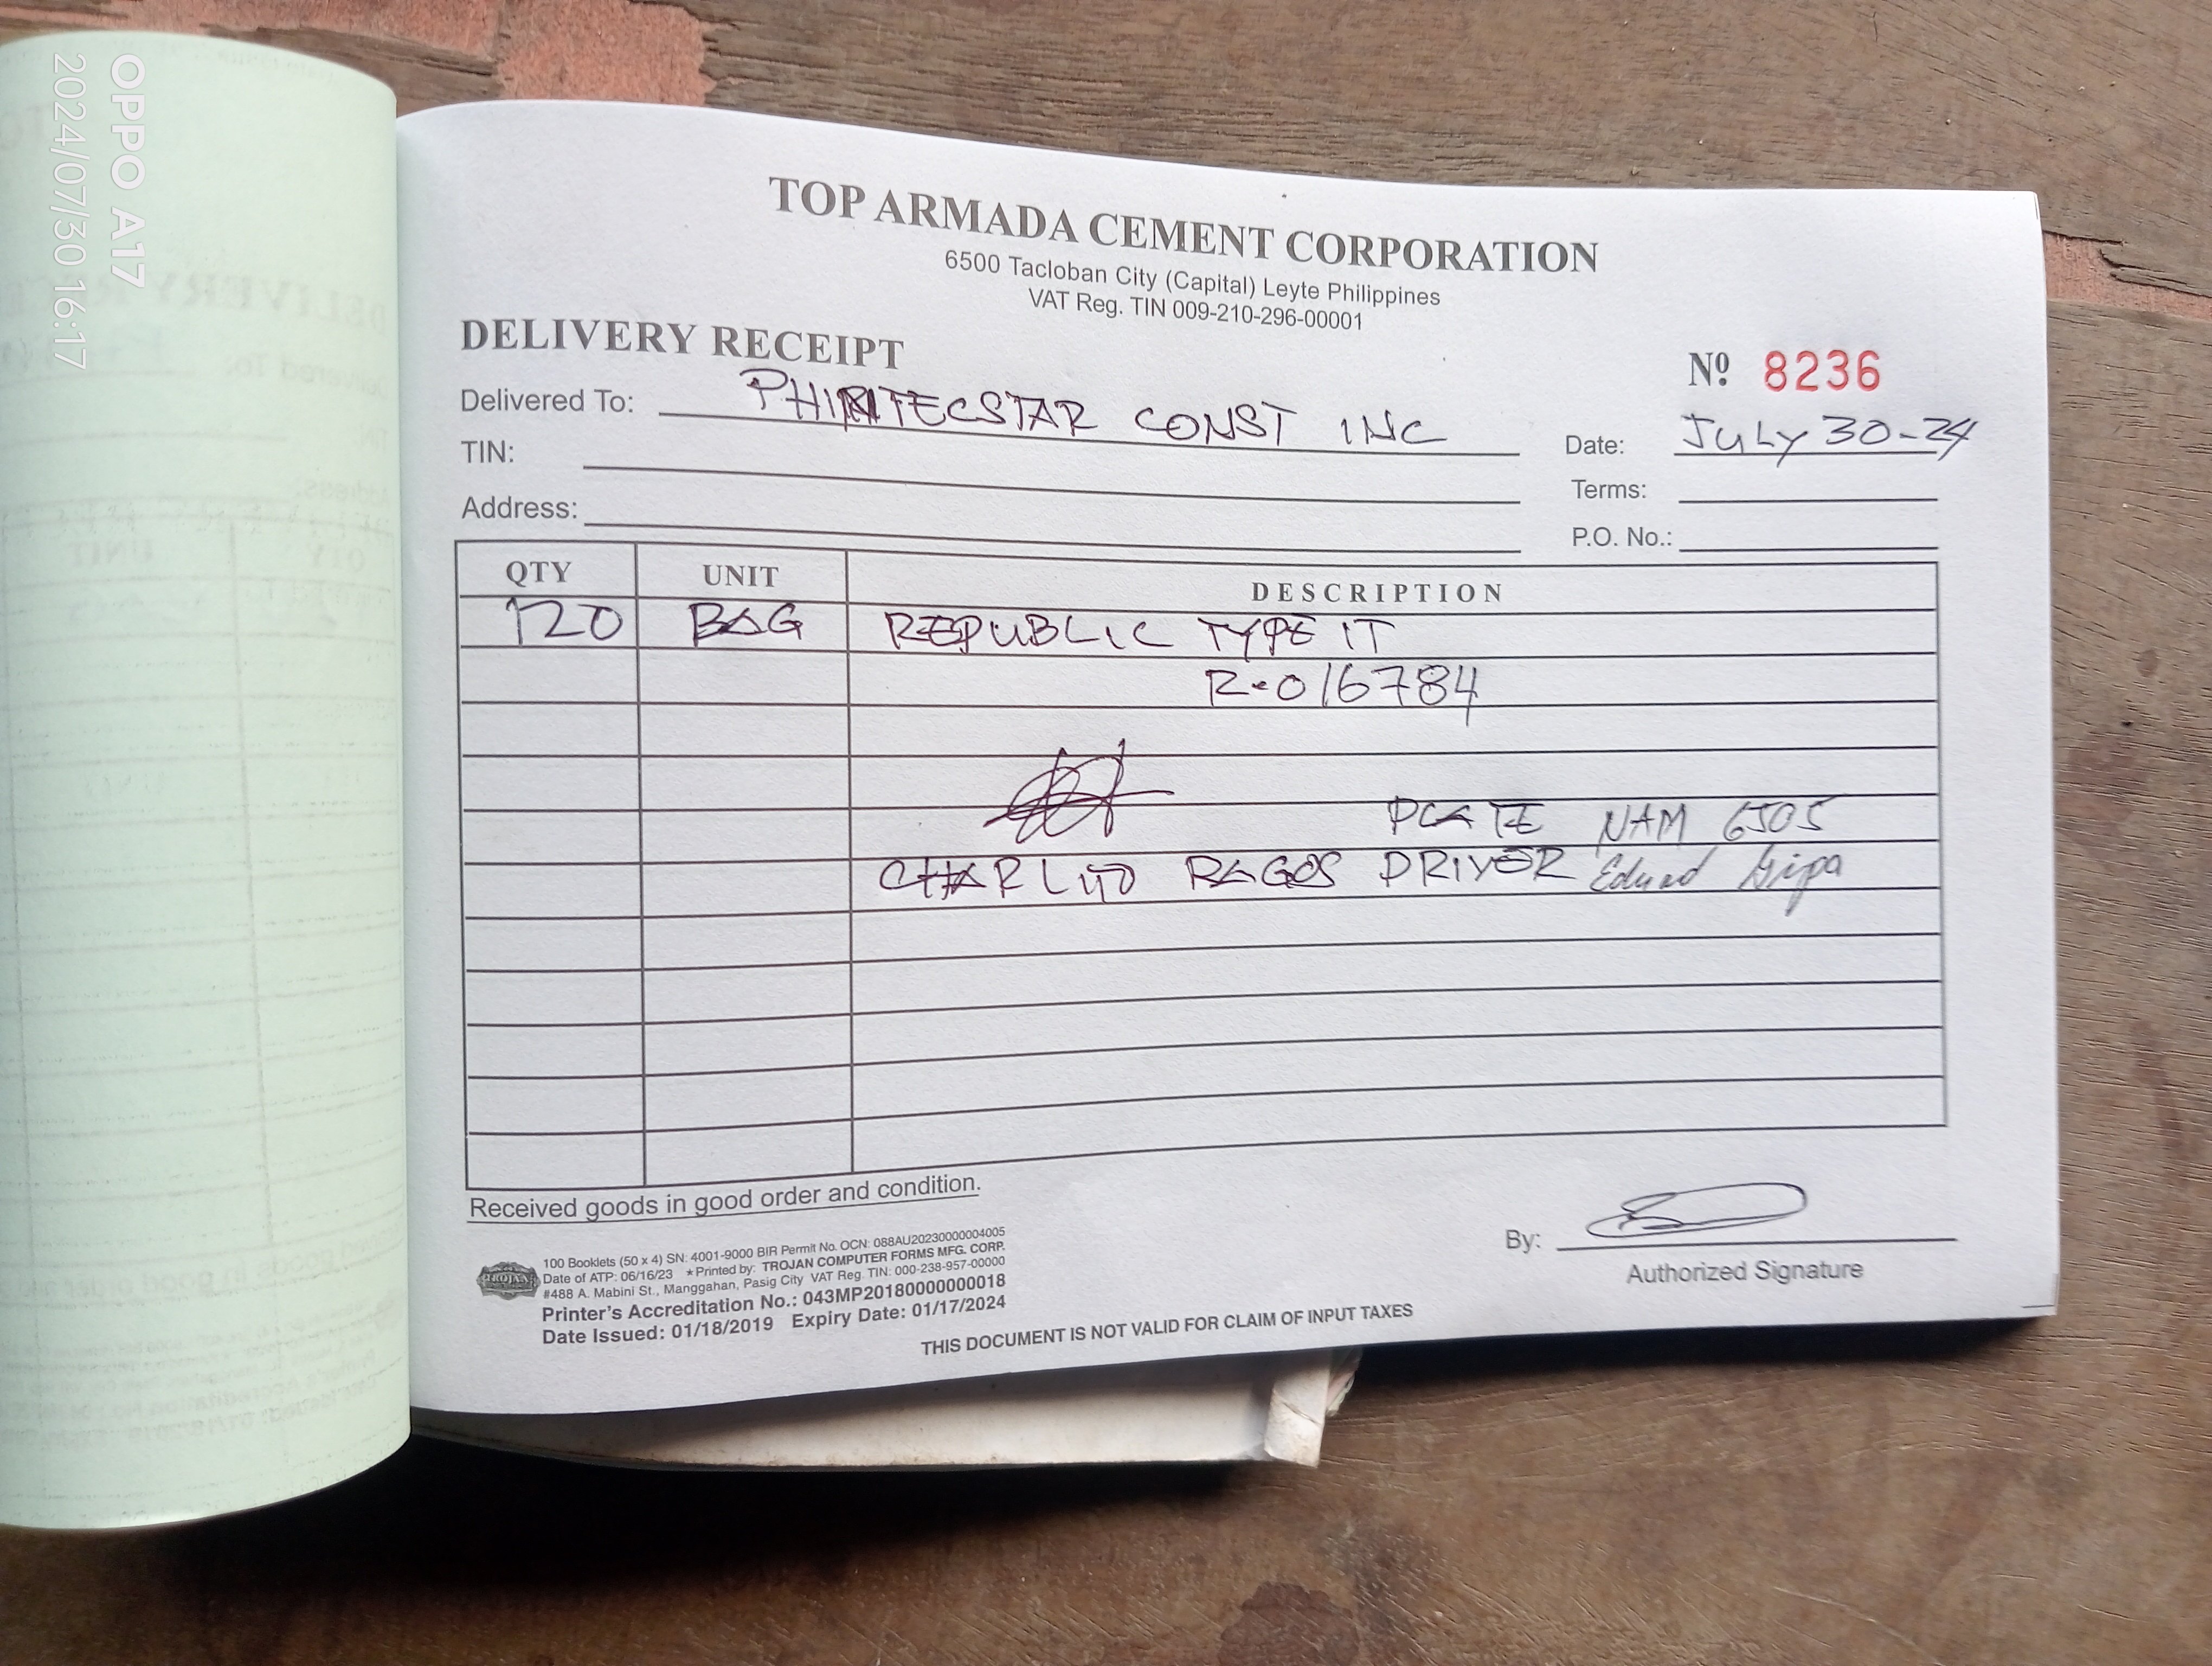 OPPO A17
2024/07/30 16:17
TOP ARMADA CEMENT CORPORATION
6500 Tacloban City (Capital) Leyte Philippines
VAT Reg. TIN 009-210-296-00001
DELIVERY RECEIPT
Nº 8236
Delivered To: CONST INC
Date: JULY 30-24
TIN:
Terms:
Address:
P.O. No.:
QTY UNIT DESCRIPTION
120 BAG REPUBLIC TYPE IT
R-016784
PLATE NAM 6505
CHARLITO RAGOS DRIVER
Received goods in good order and condition.
By:
Authorized Signature
TROJAN
100 Booklets (50 x 4) SN: 4001-9000 BIR Permit No. OCN: 088AU20230000004005
Date of ATP: 06/16/23 *Printed by: TROJAN COMPUTER FORMS MFG. CORP.
#488 A. Mabini St., Manggahan, Pasig City VAT Reg. TIN: 000-238-957-00000
Printer's Accreditation No.: 043MP20180000000018
Date Issued: 01/18/2019 Expiry Date: 01/17/2024
THIS DOCUMENT IS NOT VALID FOR CLAIM OF INPUT TAXES